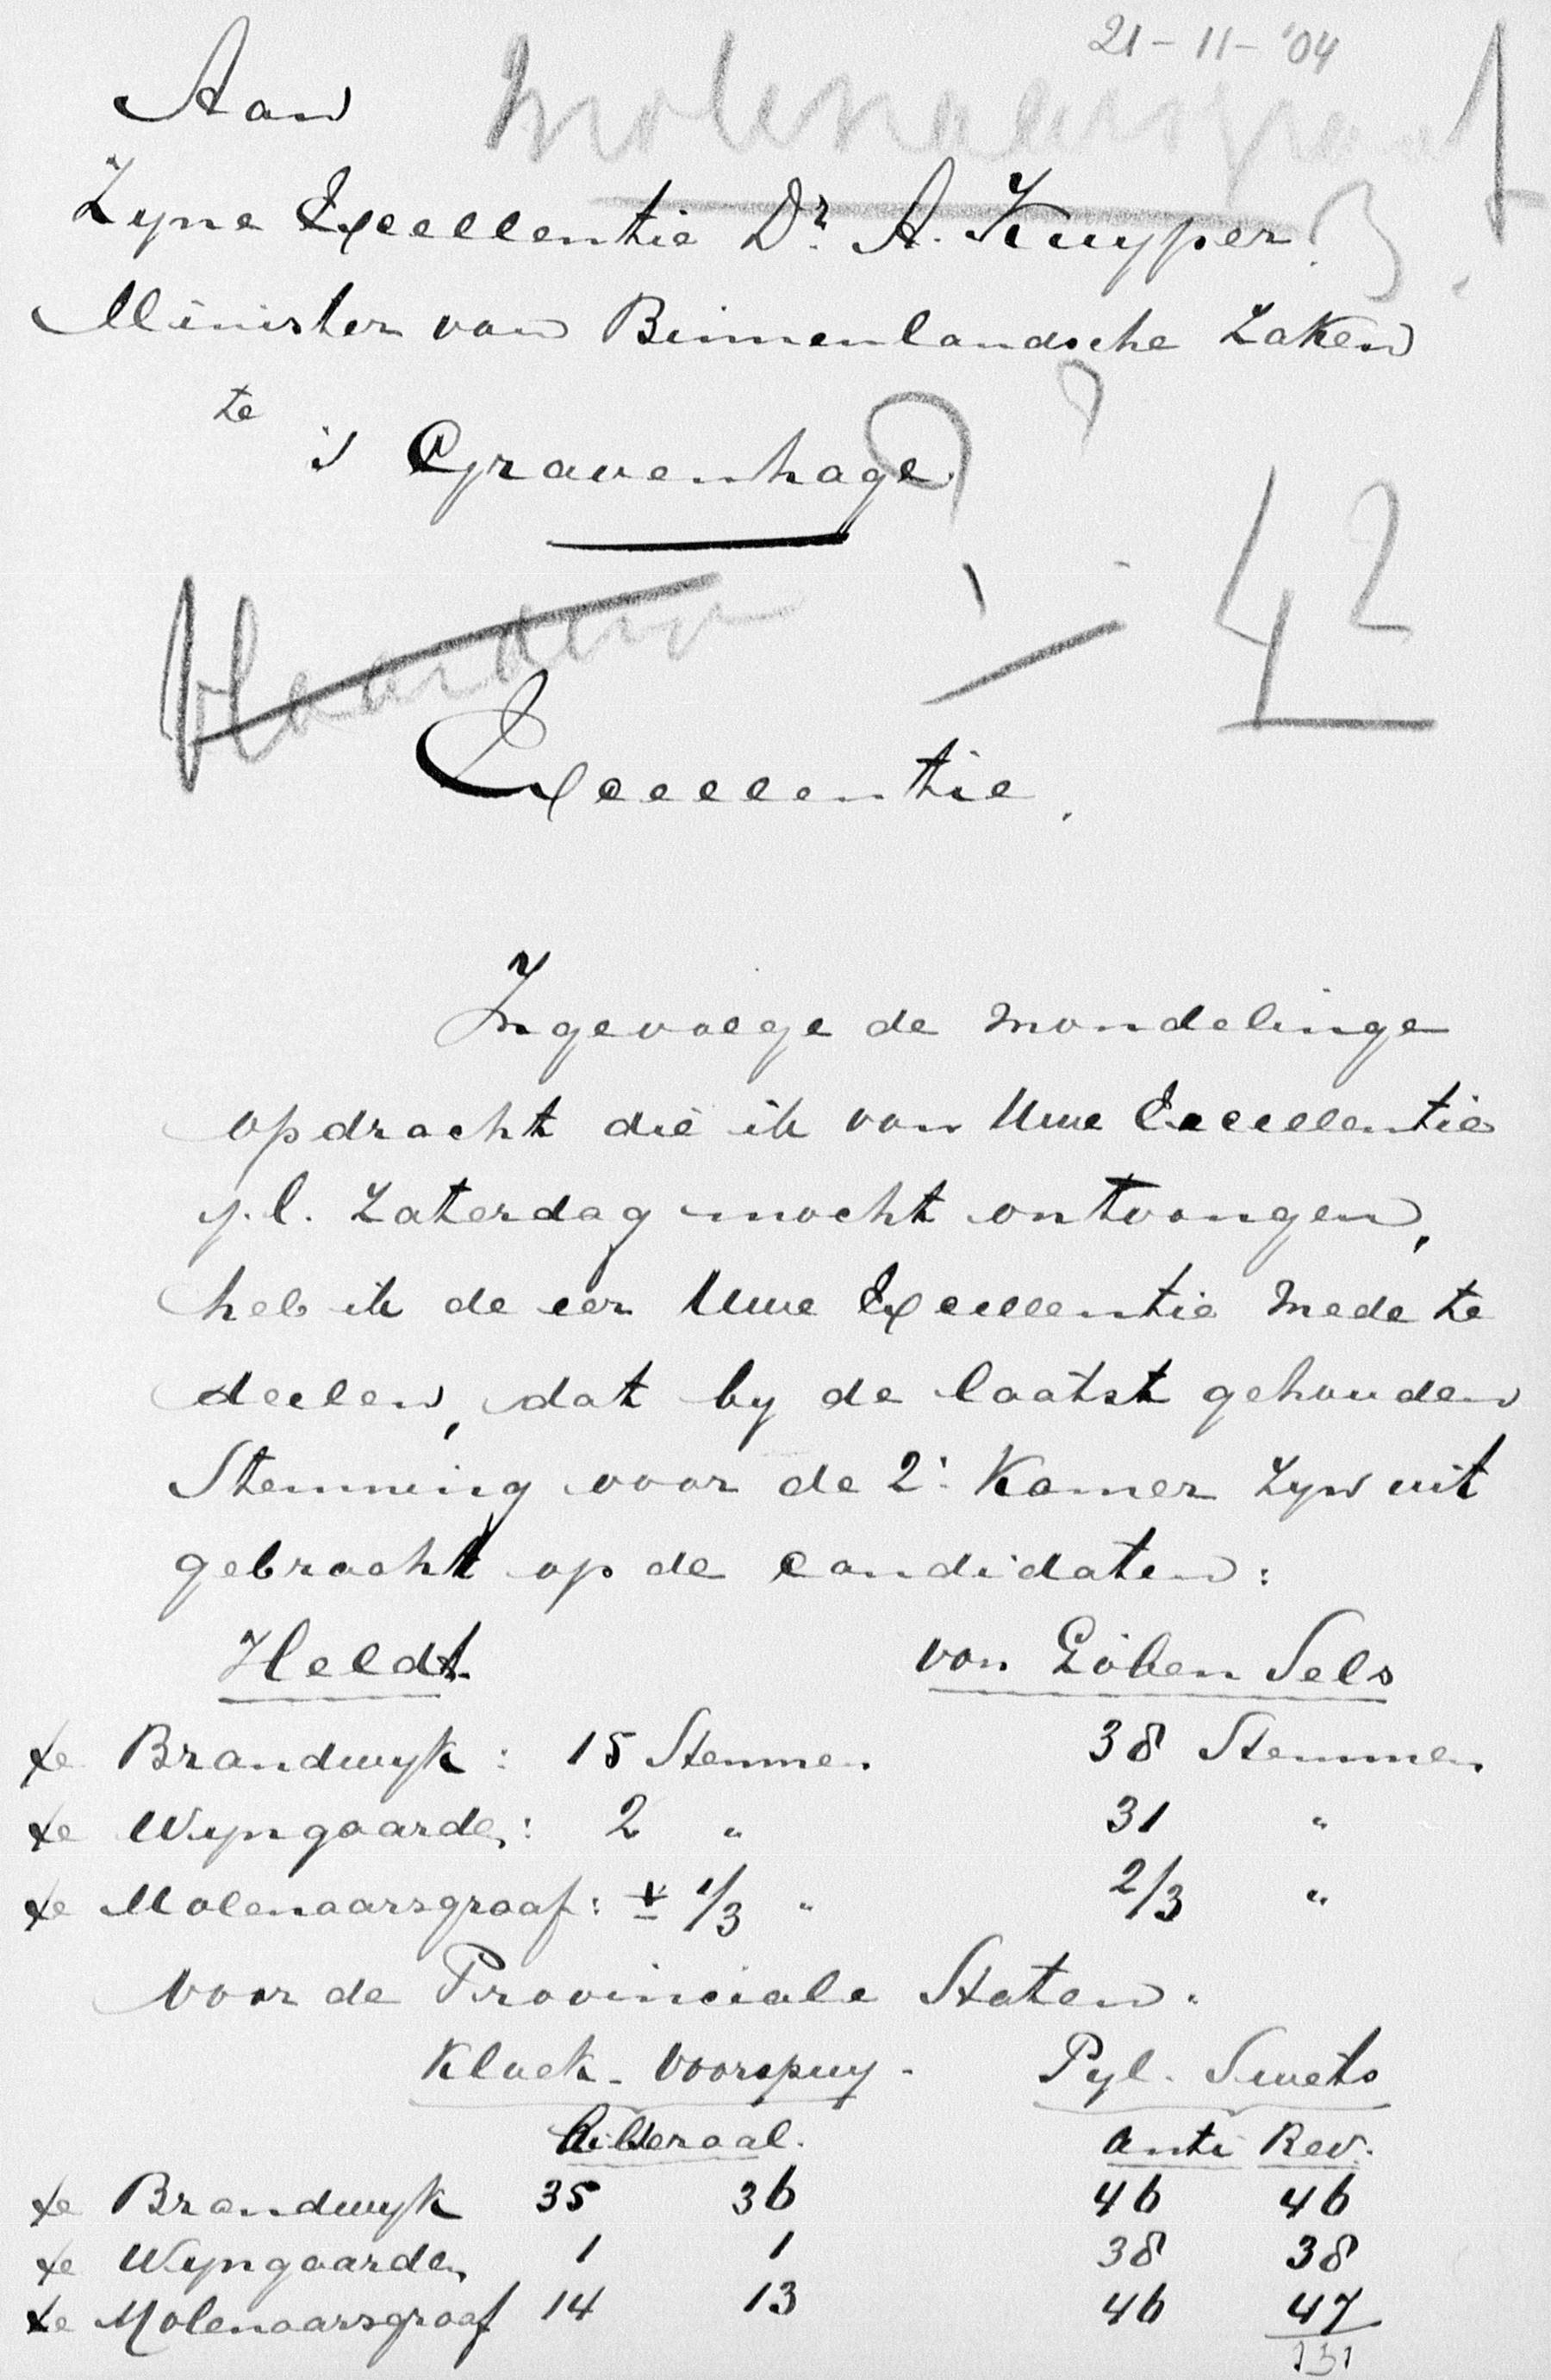 21-11-'04
Molenaarsgraaf
Aan
Zyne Excellentie Dr. A. Kuyper.
Minister van Binnenlandsche Zaken
te
's Gravenhage.
42
Excellentie.
Ingevolge de mondelinge
opdracht die ik van Uwe Excellentie
j.l. Zaterdag mocht ontvangen,
heb ik de eer Uwe Excellentie mede te
deelen, dat by de laatst gehouden
Stemming voor de 2e Kamer zyn uit
gebracht op de candidaten:
Heldt van Löben Sels
te Brandwyk: 15 Stemmen 38 Stemmen
te Wyngaarden: 2 " 31 "
te Molenaarsgraaf: ± 1/3 " 2/3 "
voor de Provinciale Staten.
Kluck - Voorspuy - Pyl. Smets
Liberaal. Anti Rev.
te Brandwyk 35 36 46 46
te Wyngaarden 1 1 38 38
te Molenaarsgraaf 14 13 46 47
131